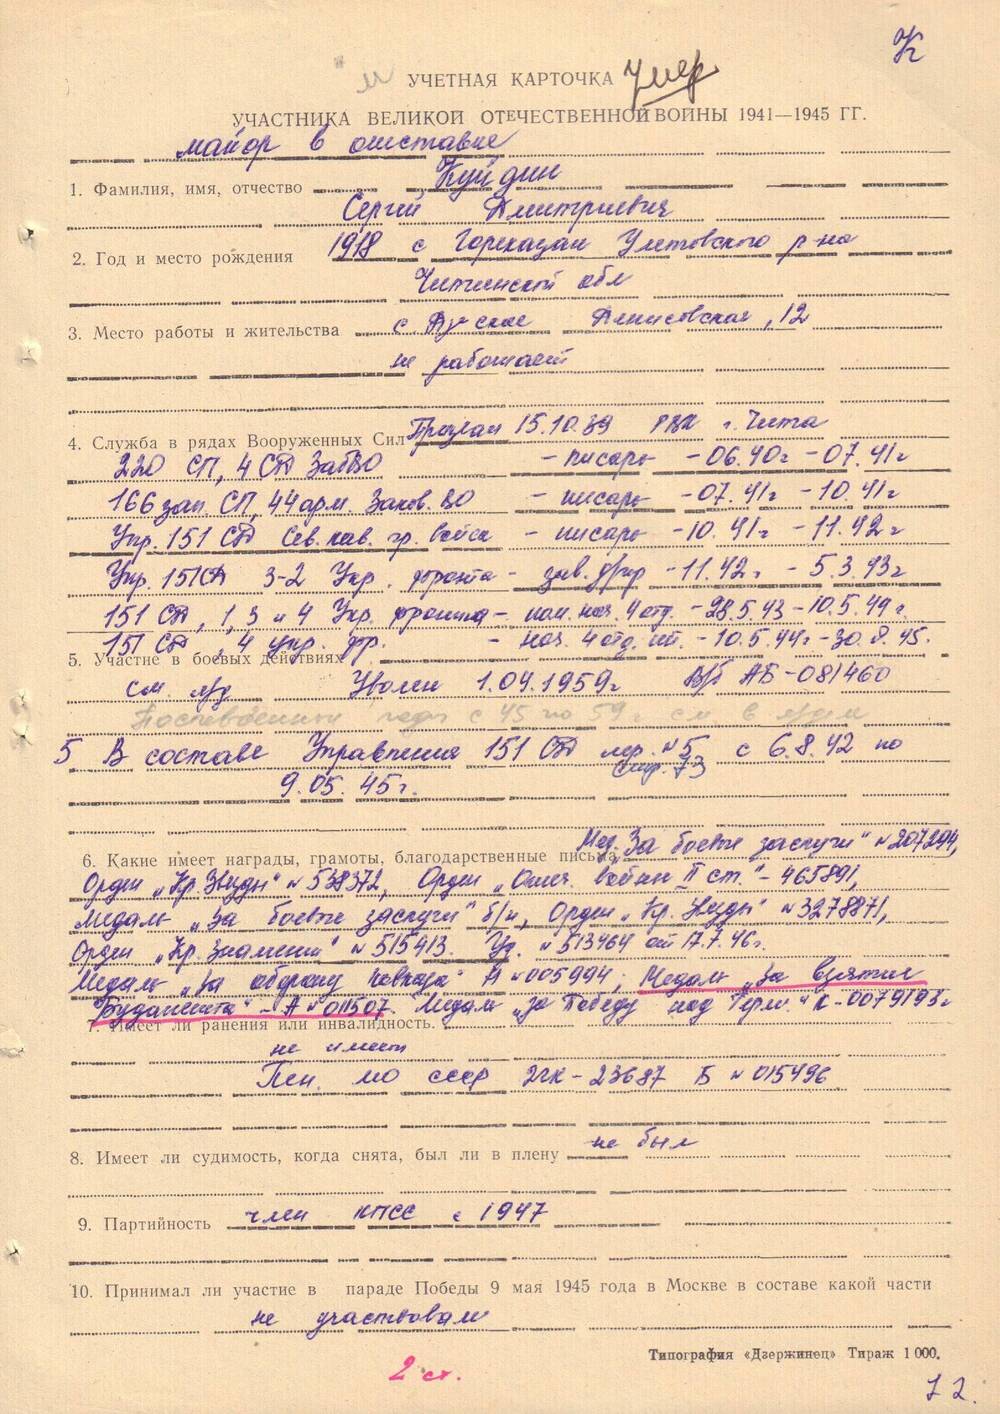 К
УЧЕТНАЯ КАРТОЧКА умер
УЧАСТНИКА ВЕЛИКОЙ ОТЕЧЕСТВЕННОЙ ВОЙНЫ 1941—1945 ГГ.
майор в отставке
1. Фамилия, имя, отчество Куйдин
Сергей Дмитриевич
2. Год и место рождения 1918 с Горекацан Улетовского р-на
Читинской обл
3. Место работы и жительства с Денисовская, 12
не работает
4. Служба в рядах Вооруженных Сил Призван 15.10.39 РВК г. Чита
220 СП, 4 СД ЗабВО - писарь - 06.40г - 07.41г
166 зап. СП, 44 арм. Закав. ВО - писарь - 07.41г - 10.41г
Упр. 151 СД Сев. кав. гр. войск - писарь - 10.41г - 11.42г
Упр. 151 СД 3-2 Укр. фронта - зав. - 11.42г - 5.3.43г
151 СД, 1, 3 и 4 Укр. фронта - пом. нач. 4 отд. - 28.5.43 - 10.5.44г.
151 СД, 4 укр. фр. - нач. 4 отд. - 10.5.44г - 30.8.45.
5. Участие в боевых действиях
см. Уволен 1.04.1959г В/б АБ-081460
Послевоенные годы с 45 по 59 г. см. в
5 В составе Управления 151 СД пер. №5 с 6.8.42 по
стр. 73
9.05.45г.
6. Какие имеет награды, грамоты, благодарственные письма Мед. За боевые заслуги" №207294,
Орден „Кр. Звезды" №538372, Орден „Отеч. войны II ст." - 465891,
Медаль „За боевые заслуги" б/н, Орден „Кр. Звезды" №3278871,
Орден „Кр. Знамени" №515413. Уд. №513464 от 17.7.46г.
Медаль „За оборону Кавказа" №005994, Медаль „За взятие
Будапешта" - А №011507. Медаль „за Победу над Герм." К-0079193г
7. Имеет ли ранения или инвалидность.
не имеет
Пен. МО СССР 2ГК-23687 Б №015496
8. Имеет ли судимость, когда снята, был ли в плену не был
9. Партийность член КПСС с 1947
10. Принимал ли участие в параде Победы 9 мая 1945 года в Москве в составе какой части
не участвовал
Типография «Дзержинец» Тираж 1 000.
2 ст.
72